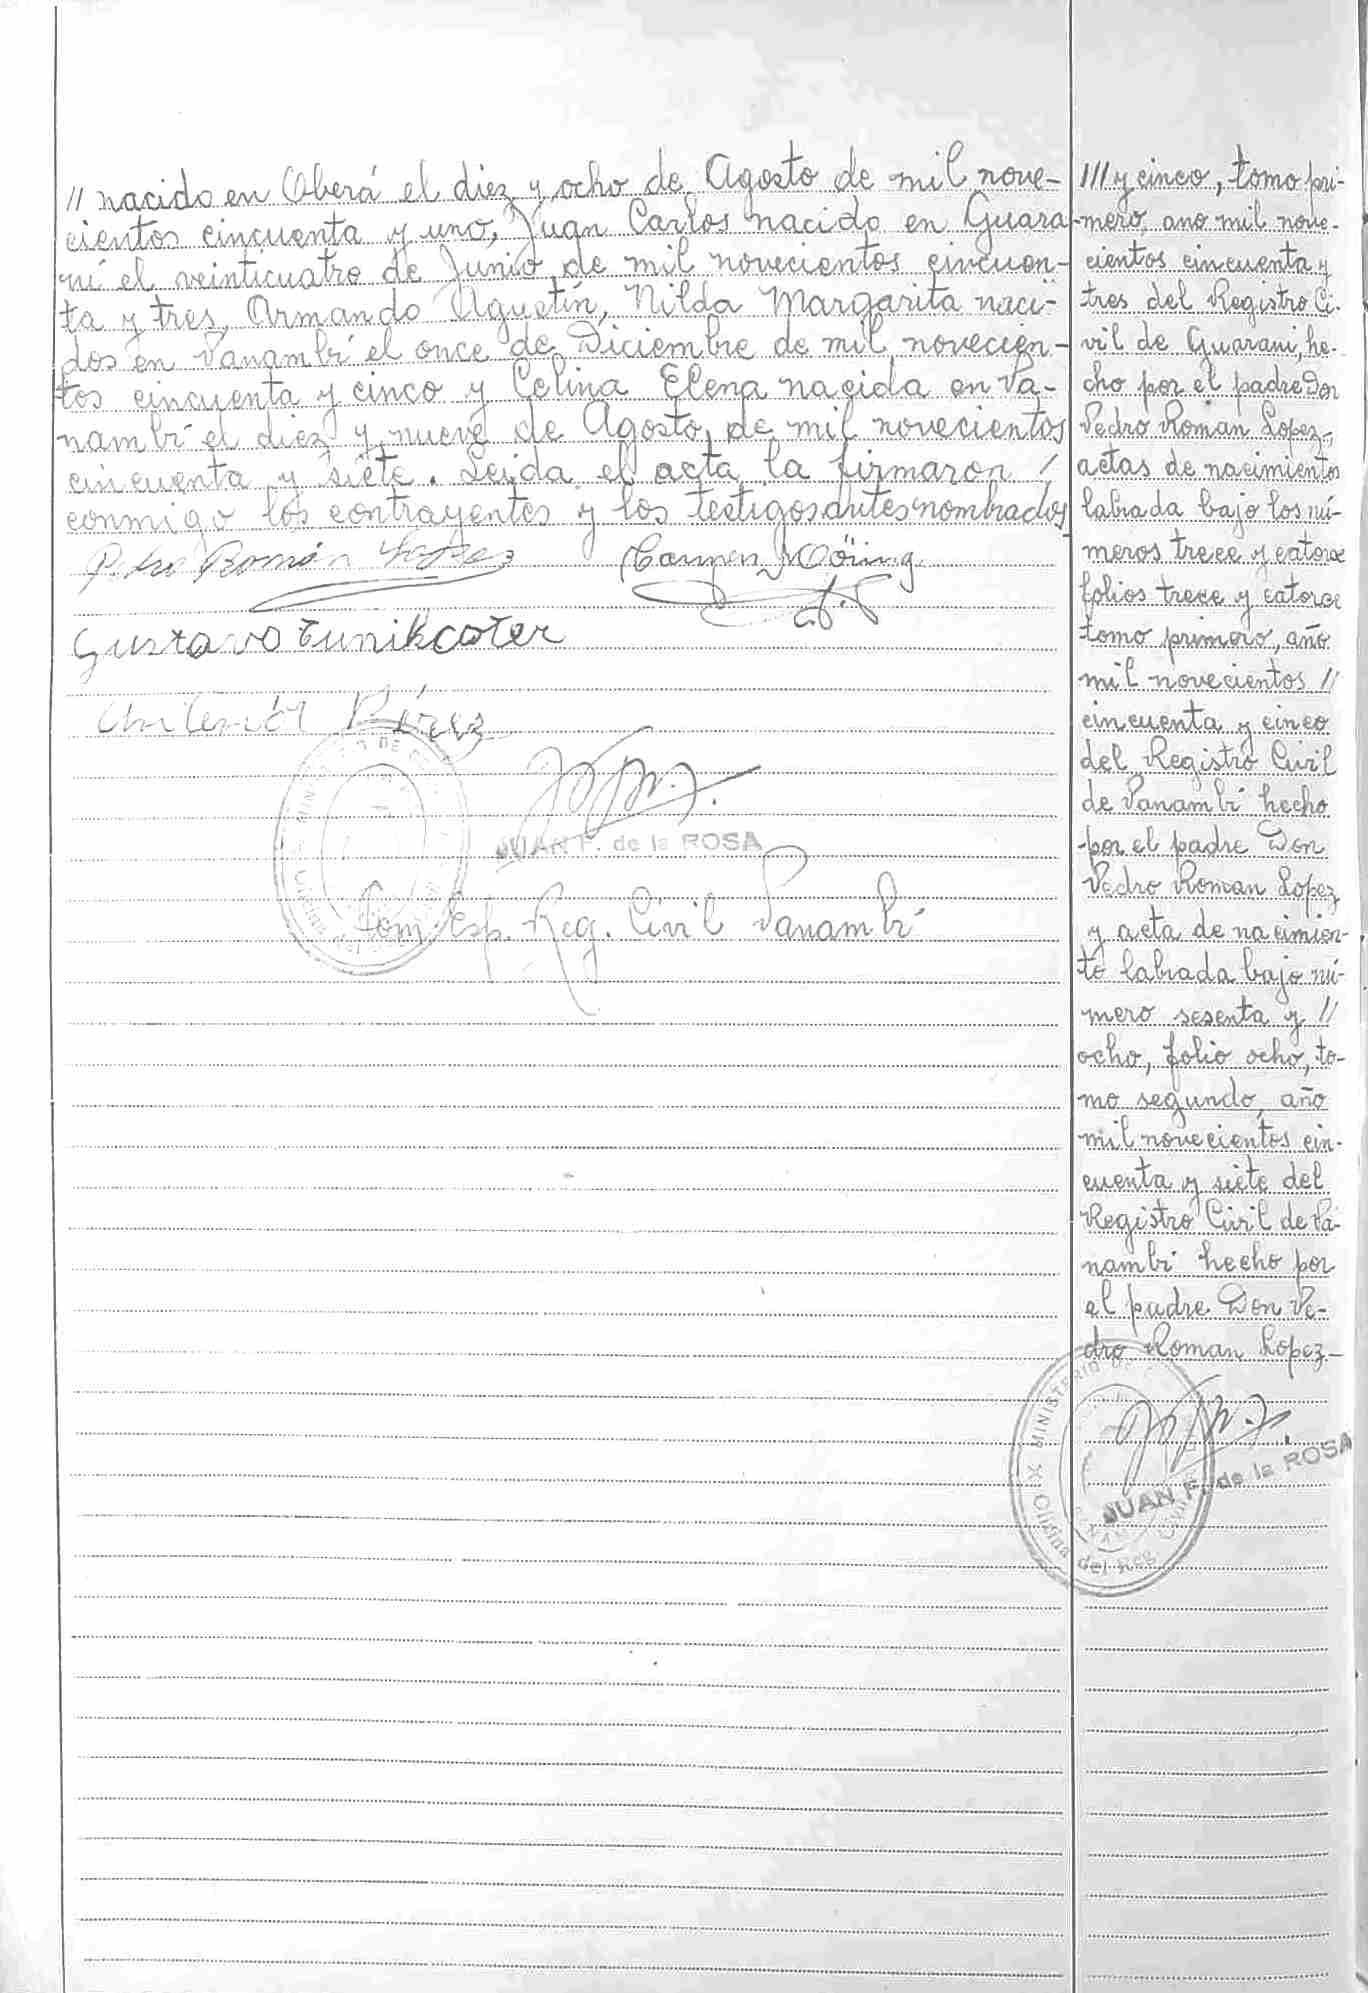 // nacido en Oberá el diez y ocho de Agosto de mil nove-
cientos cincuenta y uno, Juan Carlos nacido en Guara-
ní el veinticuatro de Junio de mil novecientos cincuen-
ta y tres, Armando Agustín, Nilda Margarita naci-
dos en Panambí el once de Diciembre de mil novecien-
tos cincuenta y cinco y Celina Elena nacida en Pa-
nambí el diez y nueve de Agosto de mil novecientos
cincuenta y siete. Leida el acta la firmaron /
conmigo los contrayentes y los testigos antes nombrados
Pedro Román Lopez Carmen Döring
Gustavo
Pérez
JUAN F. de la ROSA
Reg. Civil Panambí
/// y cinco, tomo pri-
mero, año mil nove-
cientos cincuenta y
tres del Registro Ci-
vil de Guaraní, he-
cho por el padre Don
Pedro Roman Lopez,
actas de nacimientos
labrada bajo los nú-
meros trece y catorce
folios trece y catorce
tomo primero, año
mil novecientos //
cincuenta y cinco
del Registro Civil
de Panambí hecho
por el padre Don
Pedro Roman Lopez
y acta de nacimien-
to labrada bajo nú-
mero sesenta y //
ocho, folio ocho, to-
mo segundo, año
mil novecientos cin-
cuenta y siete del
Registro Civil de Pa-
nambí hecho por
el padre Don Pe-
dro Roman Lopez-
MINISTERIO DE
JUAN F. de la ROSA
Oficina del Reg. Civil